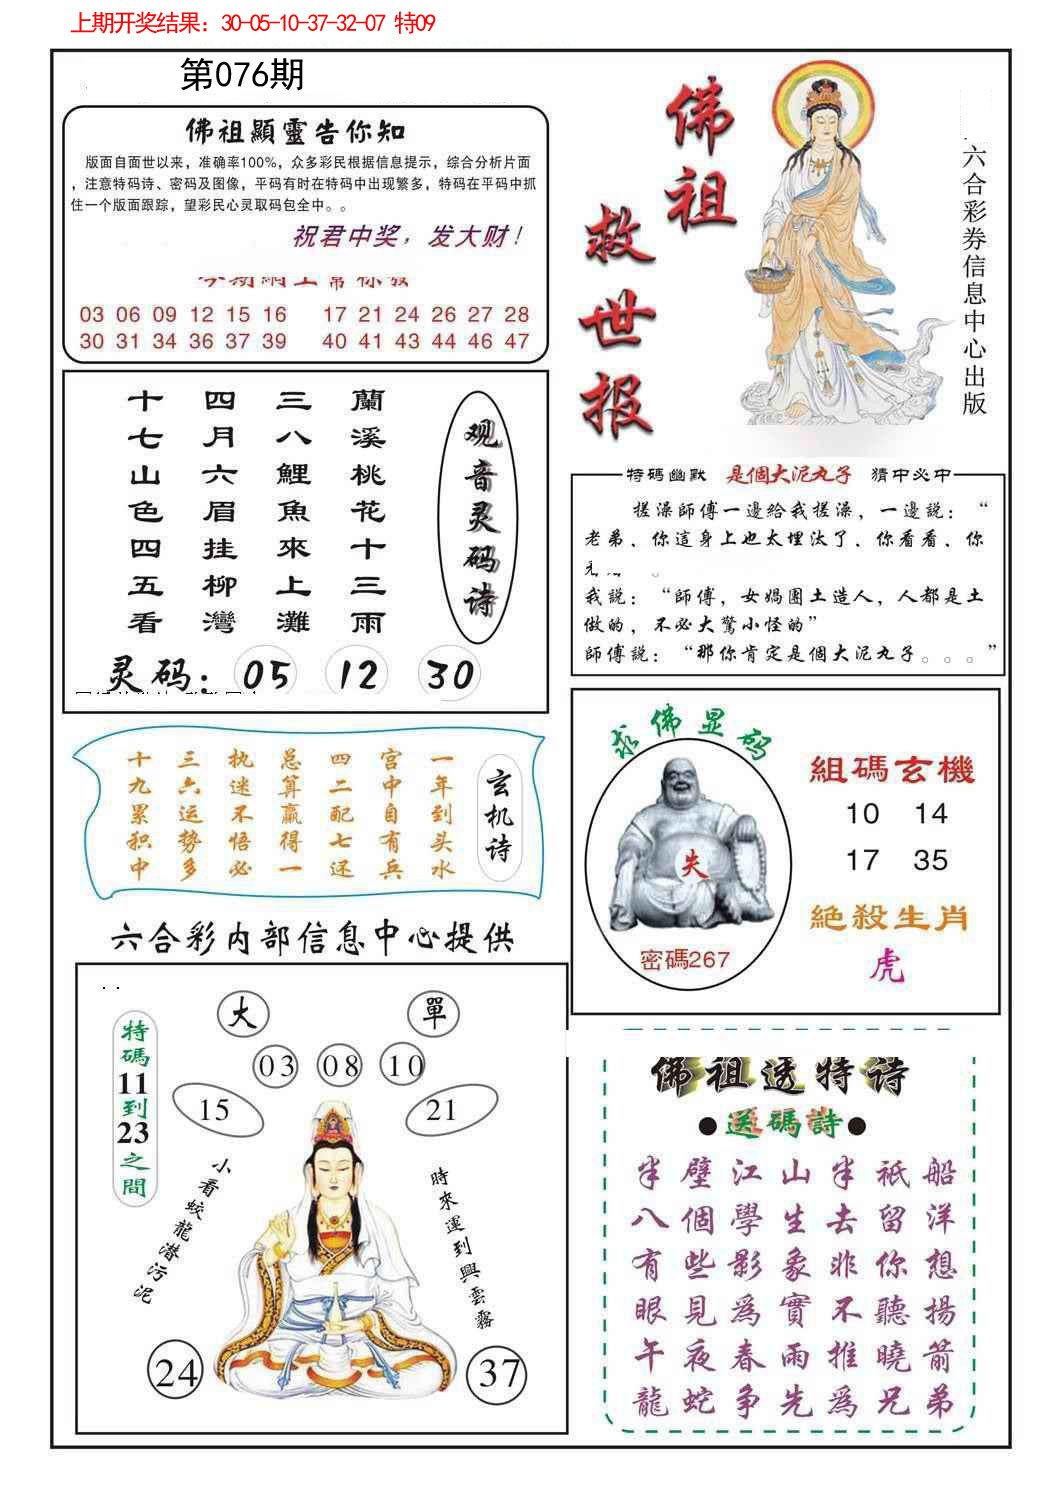 上期开奖结果：30-05-10-37-32-07 特09
第076期
佛祖顯靈告你知
版面自面世以来，准确率100%，众多彩民根据信息提示，综合分析片面
，注意特码诗、密码及图像，平码有时在特码中出现繁多，特码在平码中抓
住一个版面跟踪，望彩民心灵取码包全中。。
祝君中奖，发大财！
03 06 09 12 15 16 17 21 24 26 27 28
30 31 34 36 37 39 40 41 43 44 46 47
佛祖
救世报
六合彩券信息中心出版
观音灵码诗
蘭溪桃花十三雨
三八鯉魚來上灘
四月六眉挂柳灣
十七山色四五看
灵码：05 12 30
特碼幽默 是個大泥丸子 猜中必中
搓澡師傅一邊給我搓澡，一邊說：“
老弟、你這身上也太埋汰了、你看看、你
我説：“師傅，女媧團土造人，人都是土
做的，不必大驚小怪的”
師傅説：“那你肯定是個大泥丸子。。。”
玄机诗
一年到头水
宫中自有兵
四二配七还
总算赢得一
执迷不悟必
三六运势多
十九累积中
求佛显码
失
密碼267
組碼玄機
10 14
17 35
絕殺生肖
虎
六合彩内部信息中心提供
大 單
03 08 10
15 21
特碼11到23之間
小看蛟龍潜污泥
時來運到興雲霧
24 37
佛祖透特诗
●送碼詩●
半壁江山半祇船
八個學生去留洋
有些影象非你想
眼見為實不聽揚
午夜春雨推曉箭
龍蛇争先為兄弟